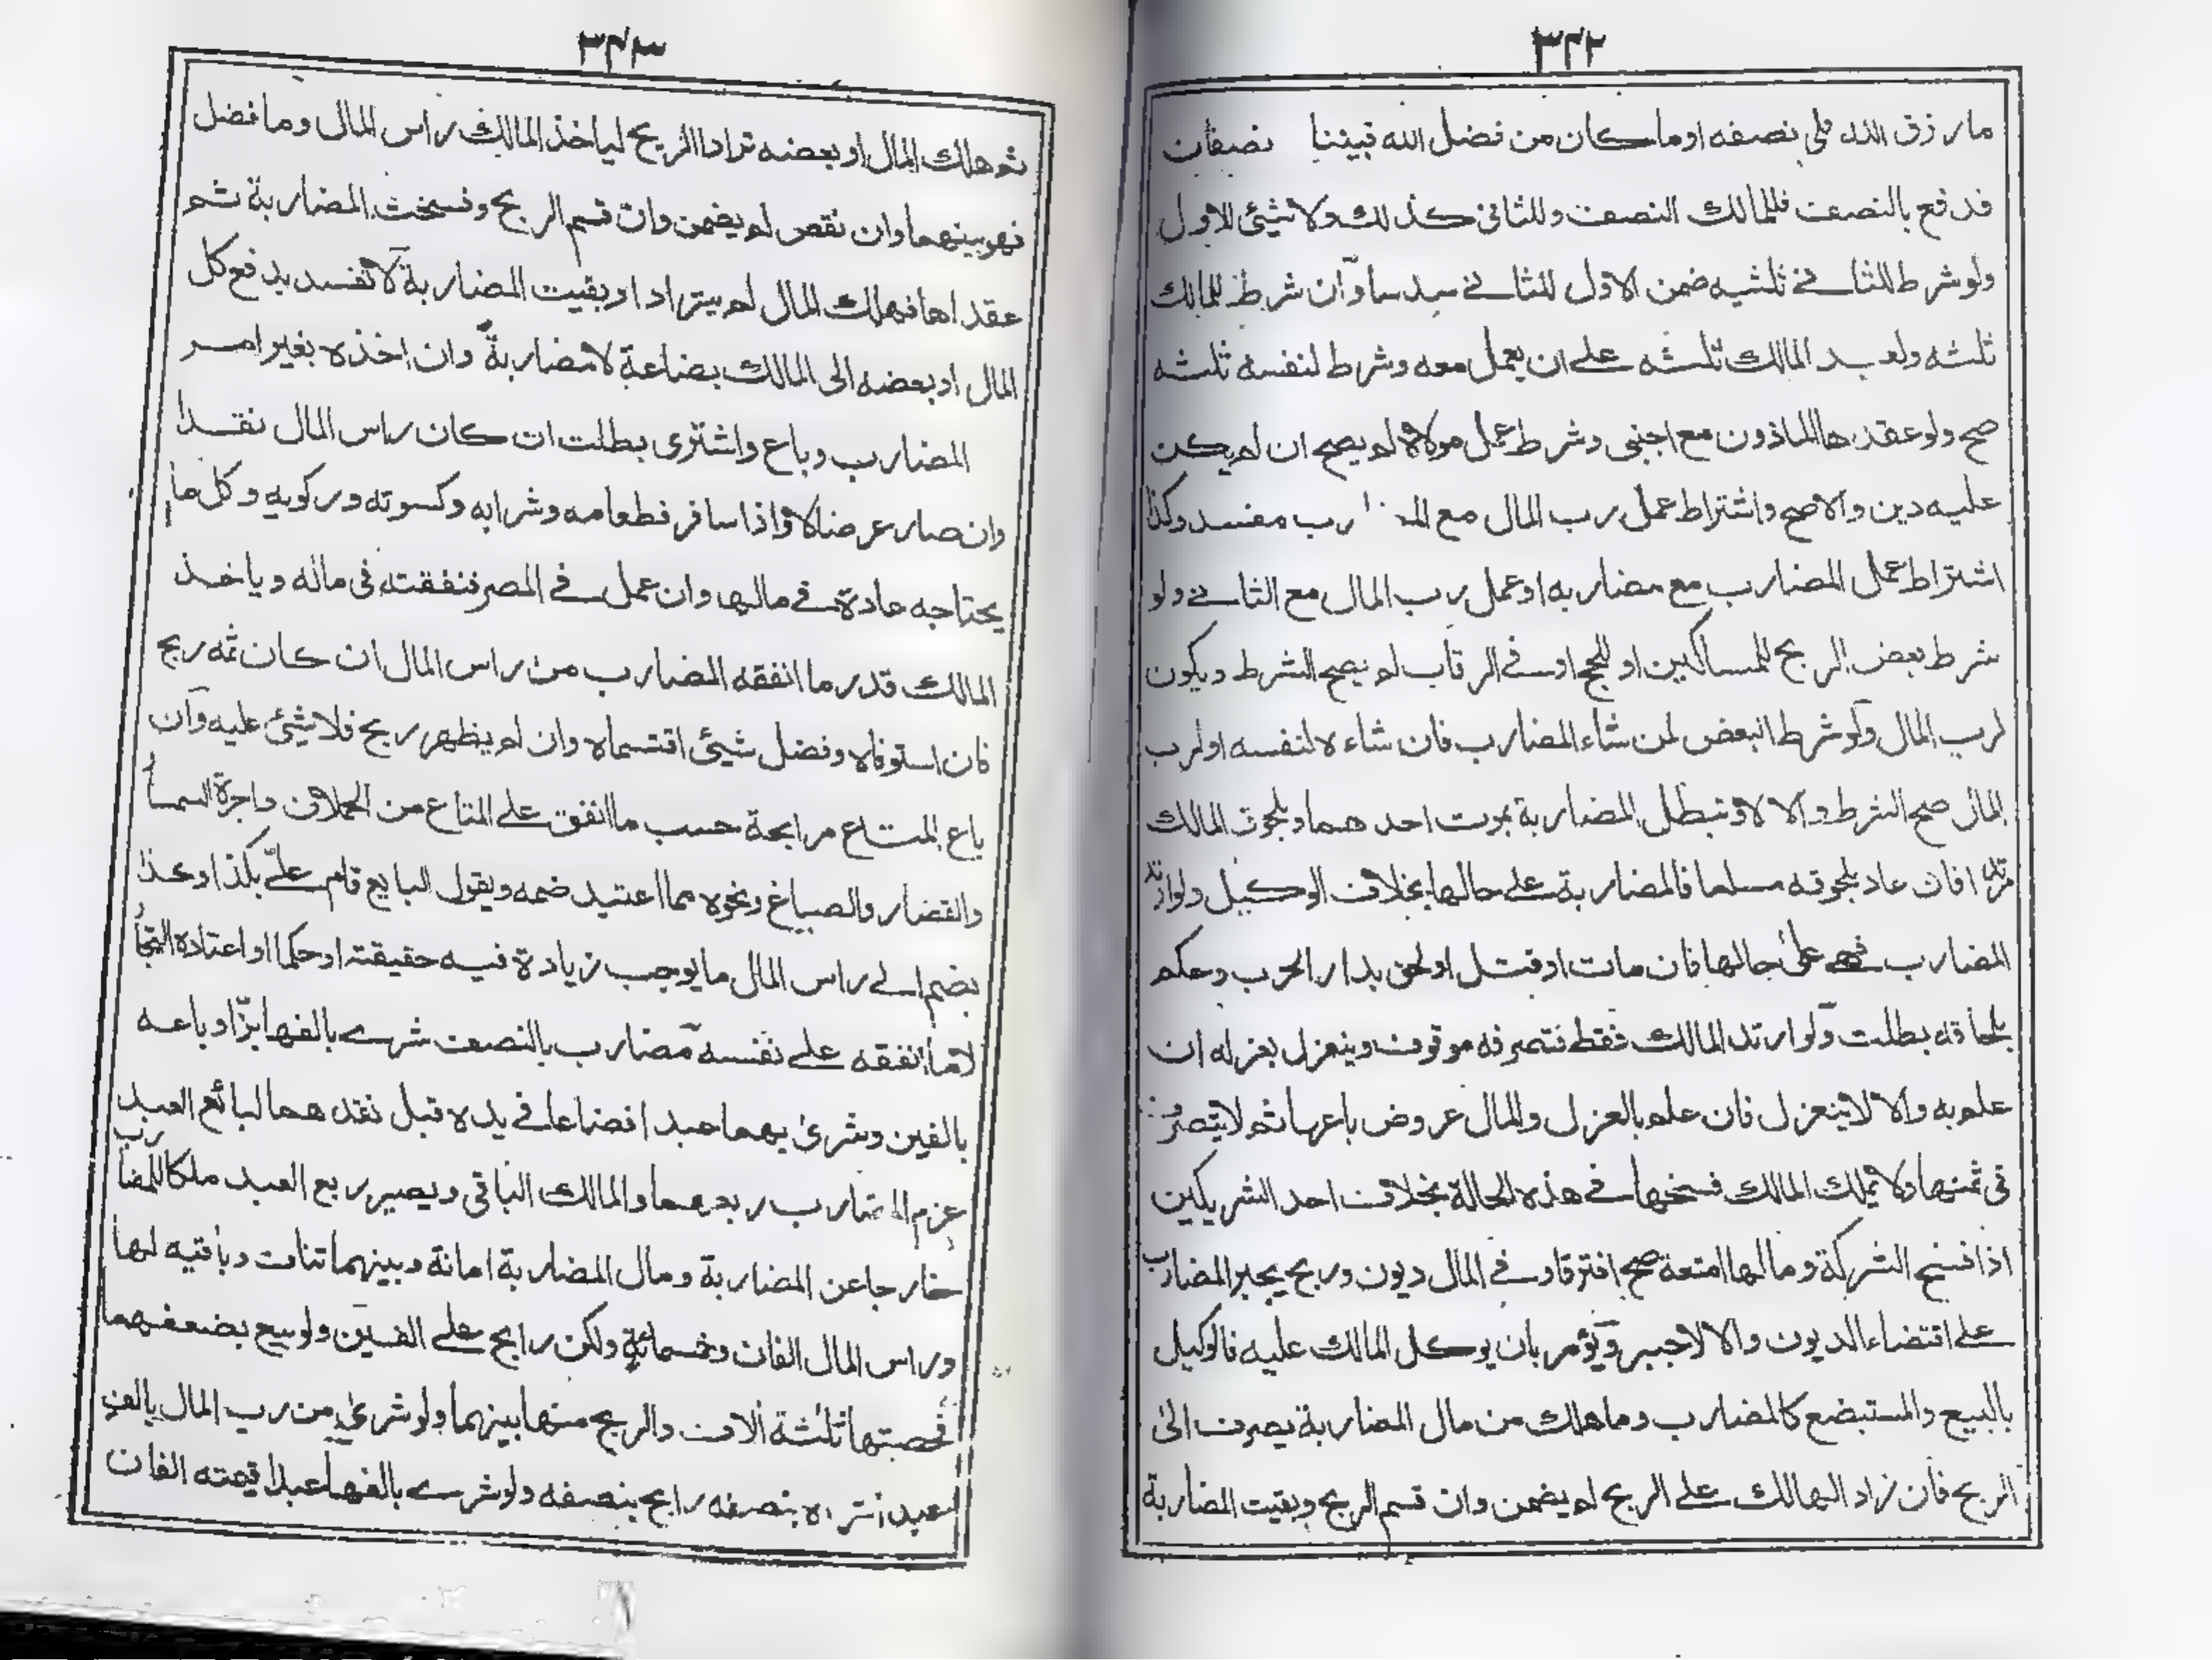 ٣٤٢
ما رزق الله فلي نصفه او ما كان من فضل الله فبيننا نصفان
فدفع بالنصف فللمالك النصف وللثاني كذلك ولا شيئ للاول
ولو شرط للثاني ثلثيه ضمن الاول للثاني سدسا وان شرط للمالك
ثلثه ولعبد المالك ثلثه على ان يعمل معه وشرط لنفسه ثلثه
صح ولو عقدها الماذون مع اجنبي وشرط عمل مولاه لم يصح ان لم يكن
عليه دين والا صح واشتراط عمل رب المال مع المضارب مفسد وكذا
اشتراط عمل المضارب مع مضاربه او عمل رب المال مع الثاني ولو
شرط بعض الربح للمساكين او للحج او في الرقاب لم يصح الشرط ويكون
لرب المال ولو شرط البعض لمن شاء المضارب فان شاءه لنفسه او لرب
المال صح الشرط والا لا وتبطل المضاربة بموت احدهما وبلحوق المالك
مرتدا فان عاد بلحوقه مسلما فالمضاربة على حالها بخلاف الوكيل ولو ارتد
المضارب فهي على حالها فان مات او قتل او لحق بدار الحرب وحكم
بلحاقه بطلت ولو ارتد المالك فقط فتصرفه موقوف وينعزل بعزله ان
علم به والا لا ينعزل فان علم بالعزل والمال عروض باعها ثم لا يتصرف
في ثمنها ولا يملك المالك فسخها في هذه الحالة بخلاف احد الشريكين
اذا فسخ الشركة ومالها امتعة صح افترقا وفي المال ديون وربح يجبر المضارب
على اقتضاء الديون والا لا جبر ويؤمر بان يوكل المالك عليه فالوكيل
بالبيع والمستبضع كالمضارب وما هلك من مال المضاربة يصرف الى
الربح فان زاد الهالك على الربح لم يضمن وان قسم الربح وبقيت المضاربة
٣٤٣
ثم هلك المال او بعضه ترادا الربح لياخذ المالك راس المال وما فضل
فهو بينهما وان نقص لم يضمن وان قسم الربح وفسخت المضاربة ثم
عقداها فهلك المال لم يترادا وبقيت المضاربة لا تفسد بدفع كل
المال او بعضه الى المالك بضاعة لا مضاربة وان اخذه بغير امر
المضارب وباع واشترى بطلت ان كان راس المال نقدا
وان صار عرضا لا واذا سافر فطعامه وشرابه وكسوته وركوبه وكل ما
يحتاجه عادة في مالها وان عمل في المصر فنفقته في ماله وياخذ
المالك قدر ما انفقه المضارب من راس المال ان كان ثمه ربح
فان استوفاه وفضل شيئ اقتسماه وان لم يظهر ربح فلا شيئ عليه وان
باع المتاع مرابحة حسب ما انفق على المتاع من الحملان واجرة السمسا
والقصار والصباغ ونحوه مما اعتيد ضمه ويقول البايع قام علي بكذا وكذا
يضم الى راس المال ما يوجب زيادة فيه حقيقة او حكما او اعتاده التجار
لا ما انفقه على نفسه مضارب بالنصف شرى بالفها بزا وباعه
بالفين وشرى بهما عبدا فضاعا في يده قبل نقدهما لبائع العبد
غرم المضارب ربعهما والمالك الباقي ويصير ربع العبد ملكا للمضارب
خارجا عن المضاربة ومال المضاربة امانة وبينهما تناف وباقيه لها
وراس المال الفان وخمسمائة ولكن رابح على الفين ولو بيع بضعفهما
فحصتها ثلثة الاف والربح منها بينهما ولو شرى من رب المال بالف
عبدا شتراه بنصفه رابح بنصفه ولو شرى بالفها عبدا قيمته الفان